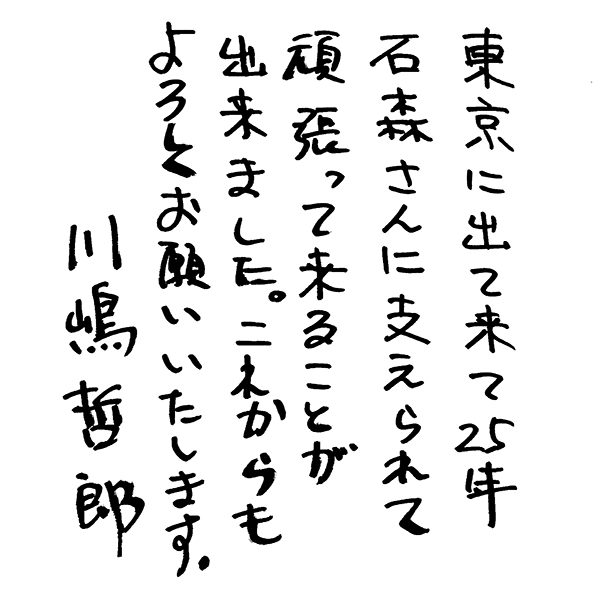 東京に出て来て25年
石森さんに支えられて
頑張って来ることが
出来ました。これからも
よろしくお願いいたします。
川嶋哲郎